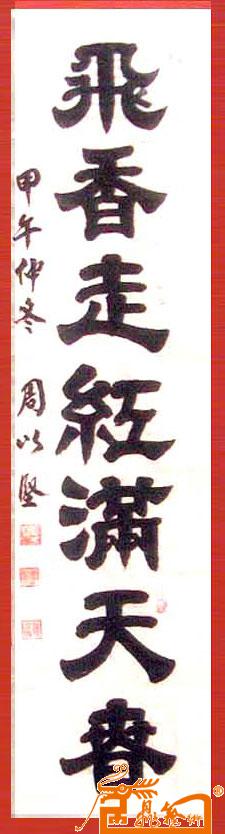 飛香走紅滿天春
甲午仲冬 周以堅